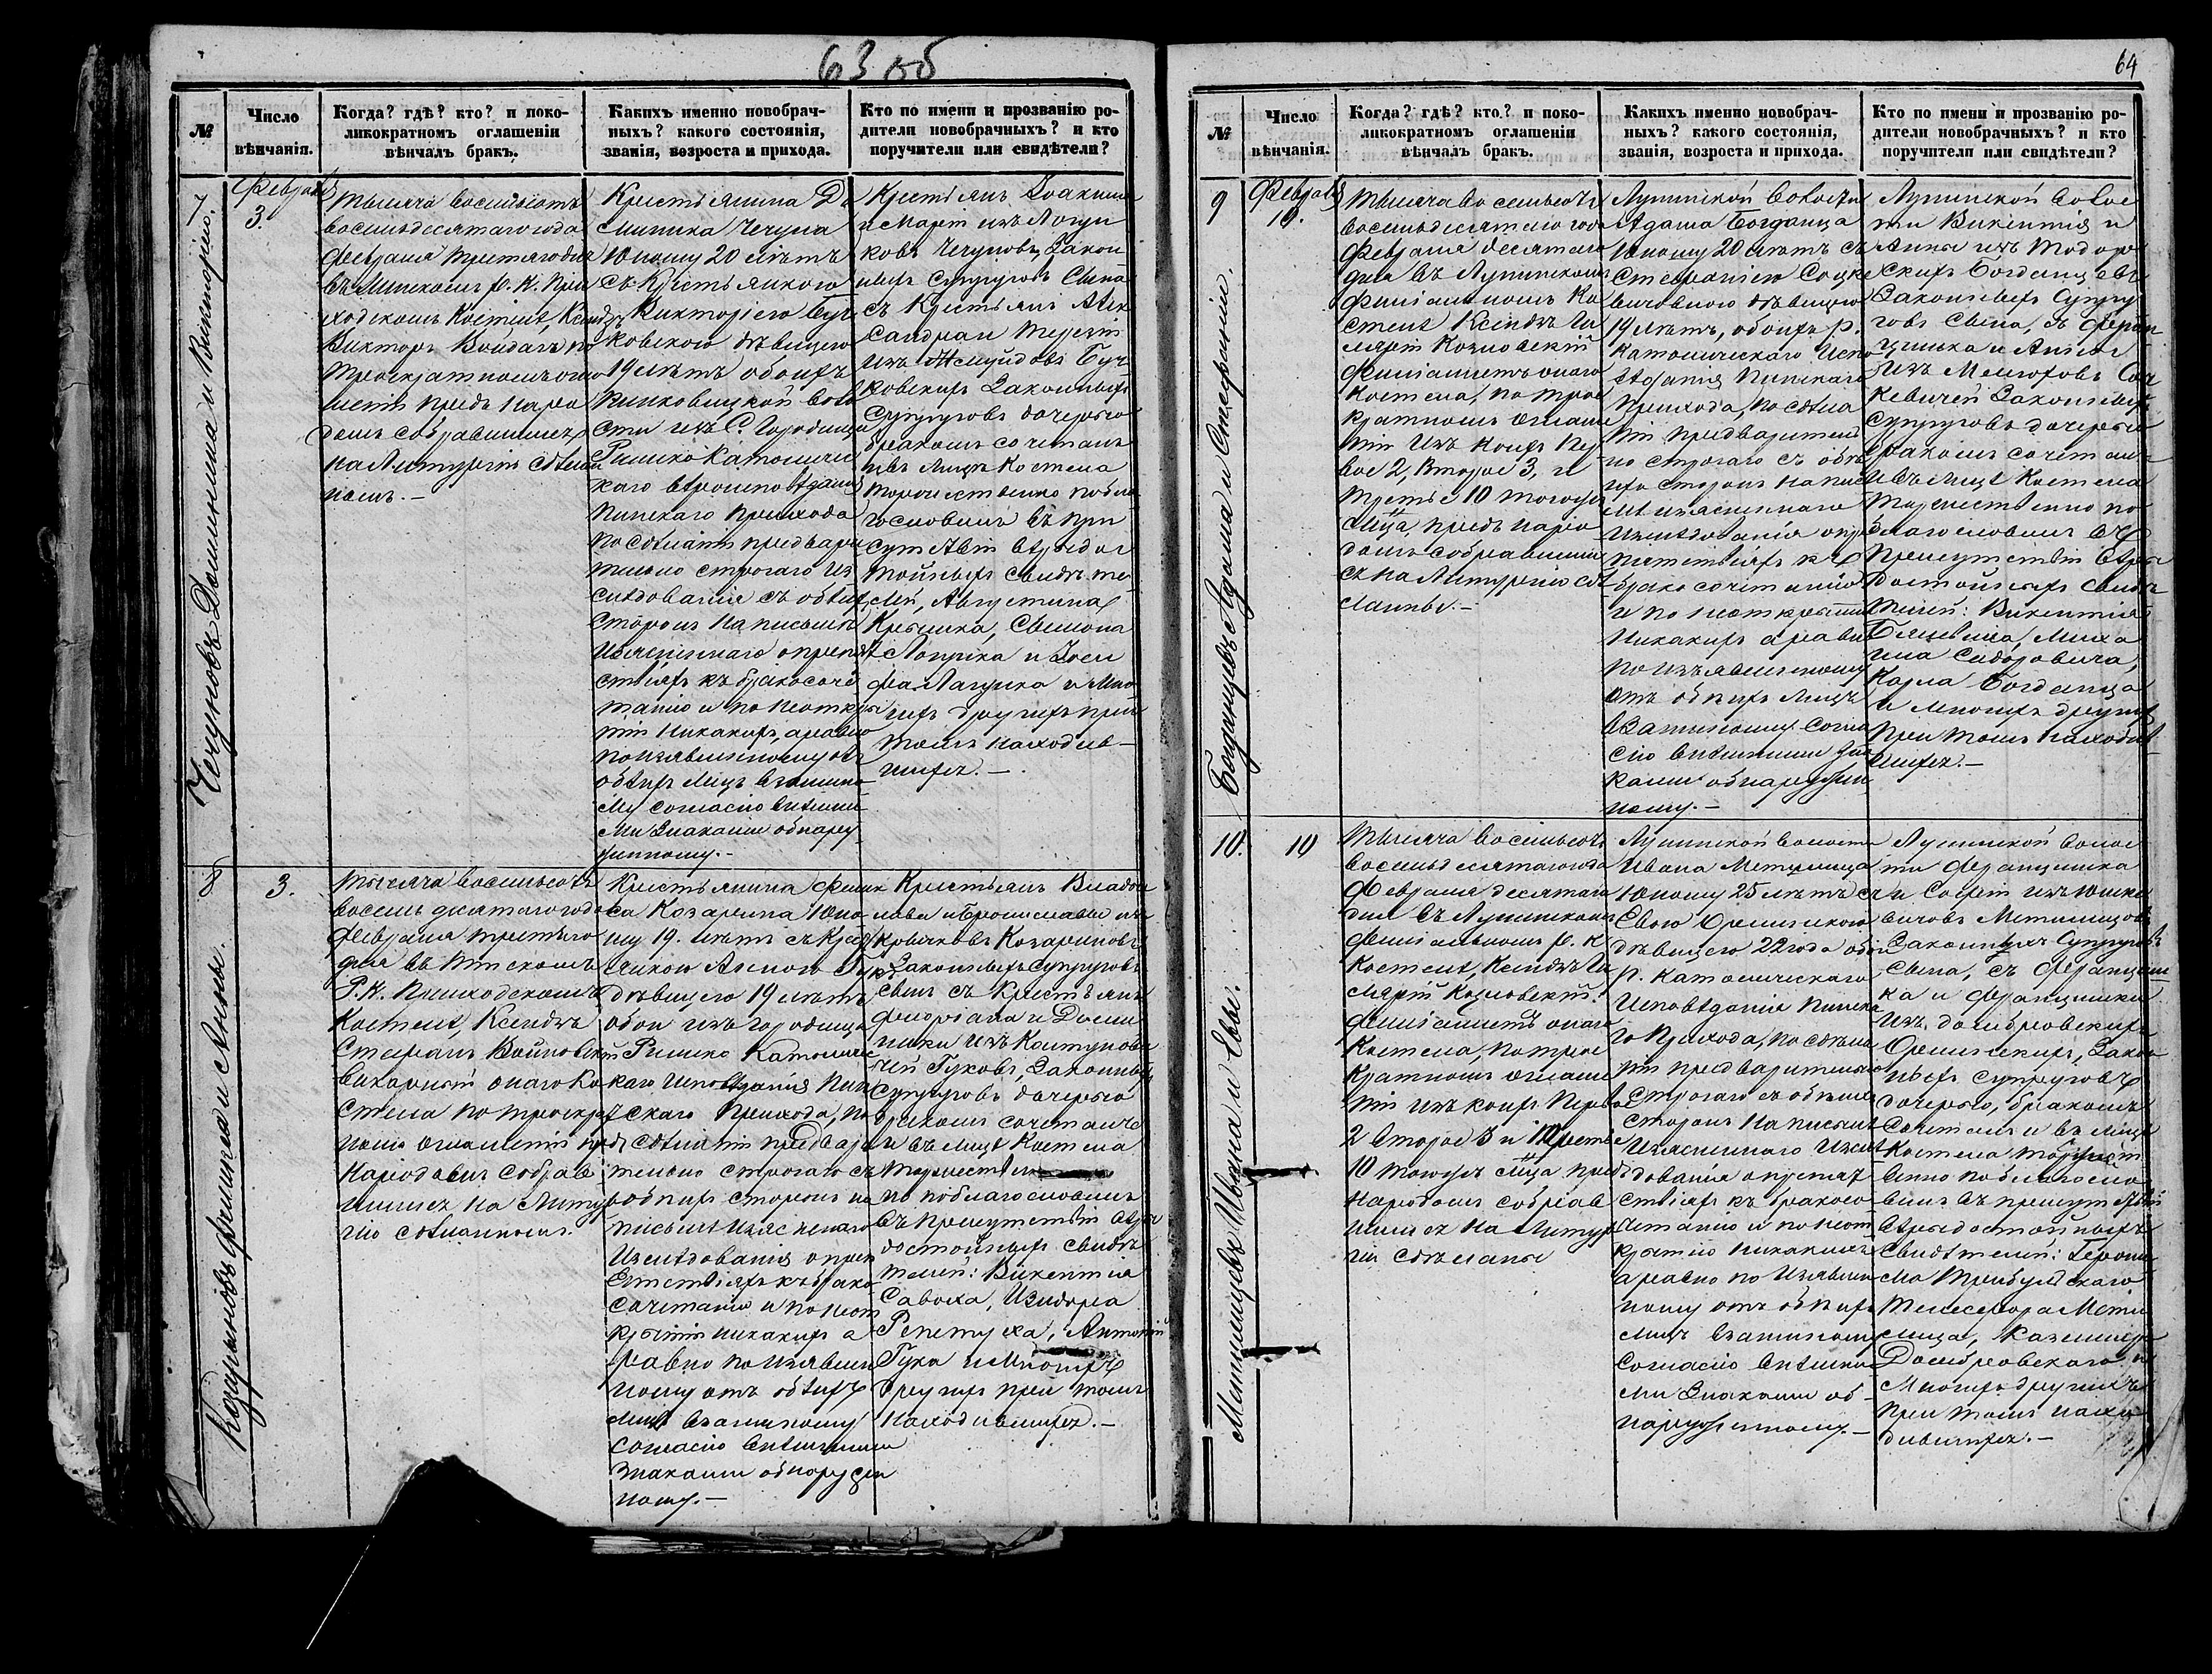 63 об
№
Число
вѣнчанія.
Когда? гдѣ? кто? и поко-
ликократномъ оглашеніи
вѣнчалъ бракъ.
Какихъ именно новобрач-
ныхъ? какого состоянія,
званія, возроста и прихода.
Кто по имени и прозванію ро-
дители новобрачныхъ? и кто
поручители или свидѣтели?
7
Февраля
3.
Тысяча восемьсотъ
восемьдесятаго года
Февраля третяго дня
въ Пинскомъ Р. К. При
ходскомъ Костелѣ, Ксендзъ
Викторъ по
троекратномъ огла
шеніи предъ наро
домъ собравшимся
на Литургію сдѣлан
номъ.—
Крестьянина До
миника Чечуна
Юношу 20 лѣтъ
съ Крестьянкою
Викторіею Буч
ковскою дѣвицею
19 лѣтъ обоихъ
воло
сти изъ С. Городища
Римско Католичес
каго вѣроисповѣданія
Пинскаго Прихода
по сдѣланіи предвари
тельно строгаго Из
слѣдованія съ обѣихъ
сторонъ на письмѣ
Изъясненнаго о препят
ствіяхъ къ бракосоче
танію и по неоткры
тіи никакихъ, а равно
по изъявленному отъ
обѣихъ лицъ взаимно
му согласію внѣшни
ми знаками обнару
женному.—
Крестьянъ Іоакима
и Марты изъ
Чечуновъ Закон
ныхъ Супруговъ Сына
съ Крестьянъ Алек
сандра и
изъ Буч
ковскихъ Законныхъ
Супруговъ дочерью
бракомъ сочеталъ
и въ лицѣ Костела
торжественно побла
гословилъ въ при
сутствіи вѣродос
тойныхъ свидѣте
лей, Августина
Семиона
и Іоси
фа и мно
гихъ другихъ при
томъ находив-
шихся.—
Чечуновъ Доминика и Викторіею.
8
3.
Тысяча восемьсотъ
восемьдесятаго года
Февраля третьяго
дня въ Пинскомъ
Р. К. Приходскомъ
Костелѣ, Ксендзъ
Стефанъ Войновскій
Викарный онаго Ко
стела по троекрат
номъ оглашеніи предъ
Народомъ собрав
шимся на Литур
гію сдѣланномъ.
Крестьянина Фелик
са Козарина Юно
шу 19. лѣтъ съ Кресть
янкою Анною Гук
дѣвицею 19 лѣтъ
обои изъ Городища
Римско Католичес
каго Исповѣданія Пин
скаго Прихода, по
сдѣланіи предвари
тельно строгаго съ
обѣихъ сторонъ на
письмѣ Изъясненнаго
Изслѣдованія о преп
ятствіяхъ къ брако
сочетанію и по неот
крытіи никакихъ а
равно по изъявлен
ному отъ обѣихъ
лицъ взаимному
согласію внѣшними
знаками обнаружен
ному.—
Крестьянъ Владис
лава и Брониславы изъ
Козариновъ
Законныхъ Супруговъ
Сына съ Крестьянъ
Флоріана и Доми
ники изъ
Гуковъ, Законныхъ
супруговъ дочерью
бракомъ сочеталъ
и въ лицѣ Костела
торжествен
но поблагословилъ
въ присутствіи вѣро
достойныхъ свидѣ
телей: Викентія
Савока, Изидора
Репетуха, Антонія
Гука и многихъ
другихъ при томъ
находившихся.—
Козариновъ Феликса и Анны.
64
№
Число
вѣнчанія.
Когда? гдѣ? кто? и поко-
ликократномъ оглашеніи
вѣнчалъ бракъ.
Какихъ именно новобрач-
ныхъ? какого состоянія,
званія, возроста и прихода.
Кто по имени и прозванію ро-
дители новобрачныхъ? и кто
поручители или свидѣтели?
9
Февраля
10.
Тысяча восемьсотъ
восемьдесятаго года
Февраля десятаго
дня въ Лунинскомъ
Филіальномъ Ко
стелѣ Ксендзъ Ги
лярій Козловскій
Филіалистъ онаго
Костела, по трое
кратномъ оглаше
ніи изъ коихъ пер
вое 2, второе 3, и
третье 10 тогожъ
м-ца, предъ наро
домъ собравшим
ся на Литургію сдѣ
ланны.—
Лунинской волости
Адама Богданца
Юношу 20 лѣтъ съ
Стефаніею Соцке
вичовною дѣвицею
19 лѣтъ, обоихъ р.
Католическаго Испо
вѣданія Пинскаго
Прихода, по сдѣла
ніи предваритель
но строгаго съ обѣ
ихъ сторонъ на пись
мѣ изъясненнаго
изслѣдованія о пре
пятствіяхъ къ
бракосочетанію
и по неоткрытіи
никакихъ а равно
по изъявленному
отъ обѣихъ лицъ
взаимному согла
сію внѣшними зна
ками обнаружен
ному.—
Лунинской волос
ти Викентія и
Анны изъ Тодор
скихъ Богданцевъ
Законныхъ Супру
говъ Сына, съ Фран
цишка и Анны
изъ Соц
кевичей Законныхъ
супруговъ дочерью
бракомъ сочеталъ
и въ лицѣ Костела
торжественно по
благословилъ въ
присутствіи вѣро
достойныхъ свидѣ
телей: Викентія
Миха
ила Сидоровича,
Карла Богданца
и многихъ другихъ
при томъ находив
шихся.—
Богданцевъ Адама и Стефаніи.
10.
10
Тысяча восемьсотъ
восемьдесятаго года
Февраля десятаго
дня въ Лунинскомъ
Филіальномъ р. к.
Костелѣ, Ксендзъ Ги
лярій Козловскій.
Филіалистъ онаго
Костела, по трое
кратномъ оглаше
ніи изъ коихъ первое
2 второе 3 и третье
10 тогожъ м-ца предъ
Народомъ собрав
шимся на Литур
гіи сдѣланы
Лунинской волости
Ивана Метлица
Юношу 25 лѣтъ съ
Евою
дѣвицею 22 года обои
р. католическаго
Исповѣданія Пинска
го Прихода, по сдѣла
ніи предварительно
строгаго съ обѣихъ
сторонъ на письмѣ
Изъясненнаго Изслѣ
дованія о препят
ствіяхъ къ бракосо
четанію и по неот
крытію никакихъ
а равно по изъявлен
ному отъ обѣихъ
лицъ взаимному
согласію внѣшни
ми знаками об-
наруженному.—
Лунинской волос
ти Францишка
и Софіи изъ Юшке
вичовъ
Законныхъ Супруговъ
сына, съ Францыш
ка и Францишки
изъ Домбровскихъ
Закон
ныхъ супруговъ
дочерью, бракомъ
сочеталъ и въ лицѣ
Костела торжест
венно поблагосло
вилъ въ присутствіи
вѣродостойныхъ
свидѣтелей: Герони
ма
Телесфора
Казимира
Домбровскаго и
многихъ другихъ
при томъ нахо
дившихся.—
Ивана и Евы.